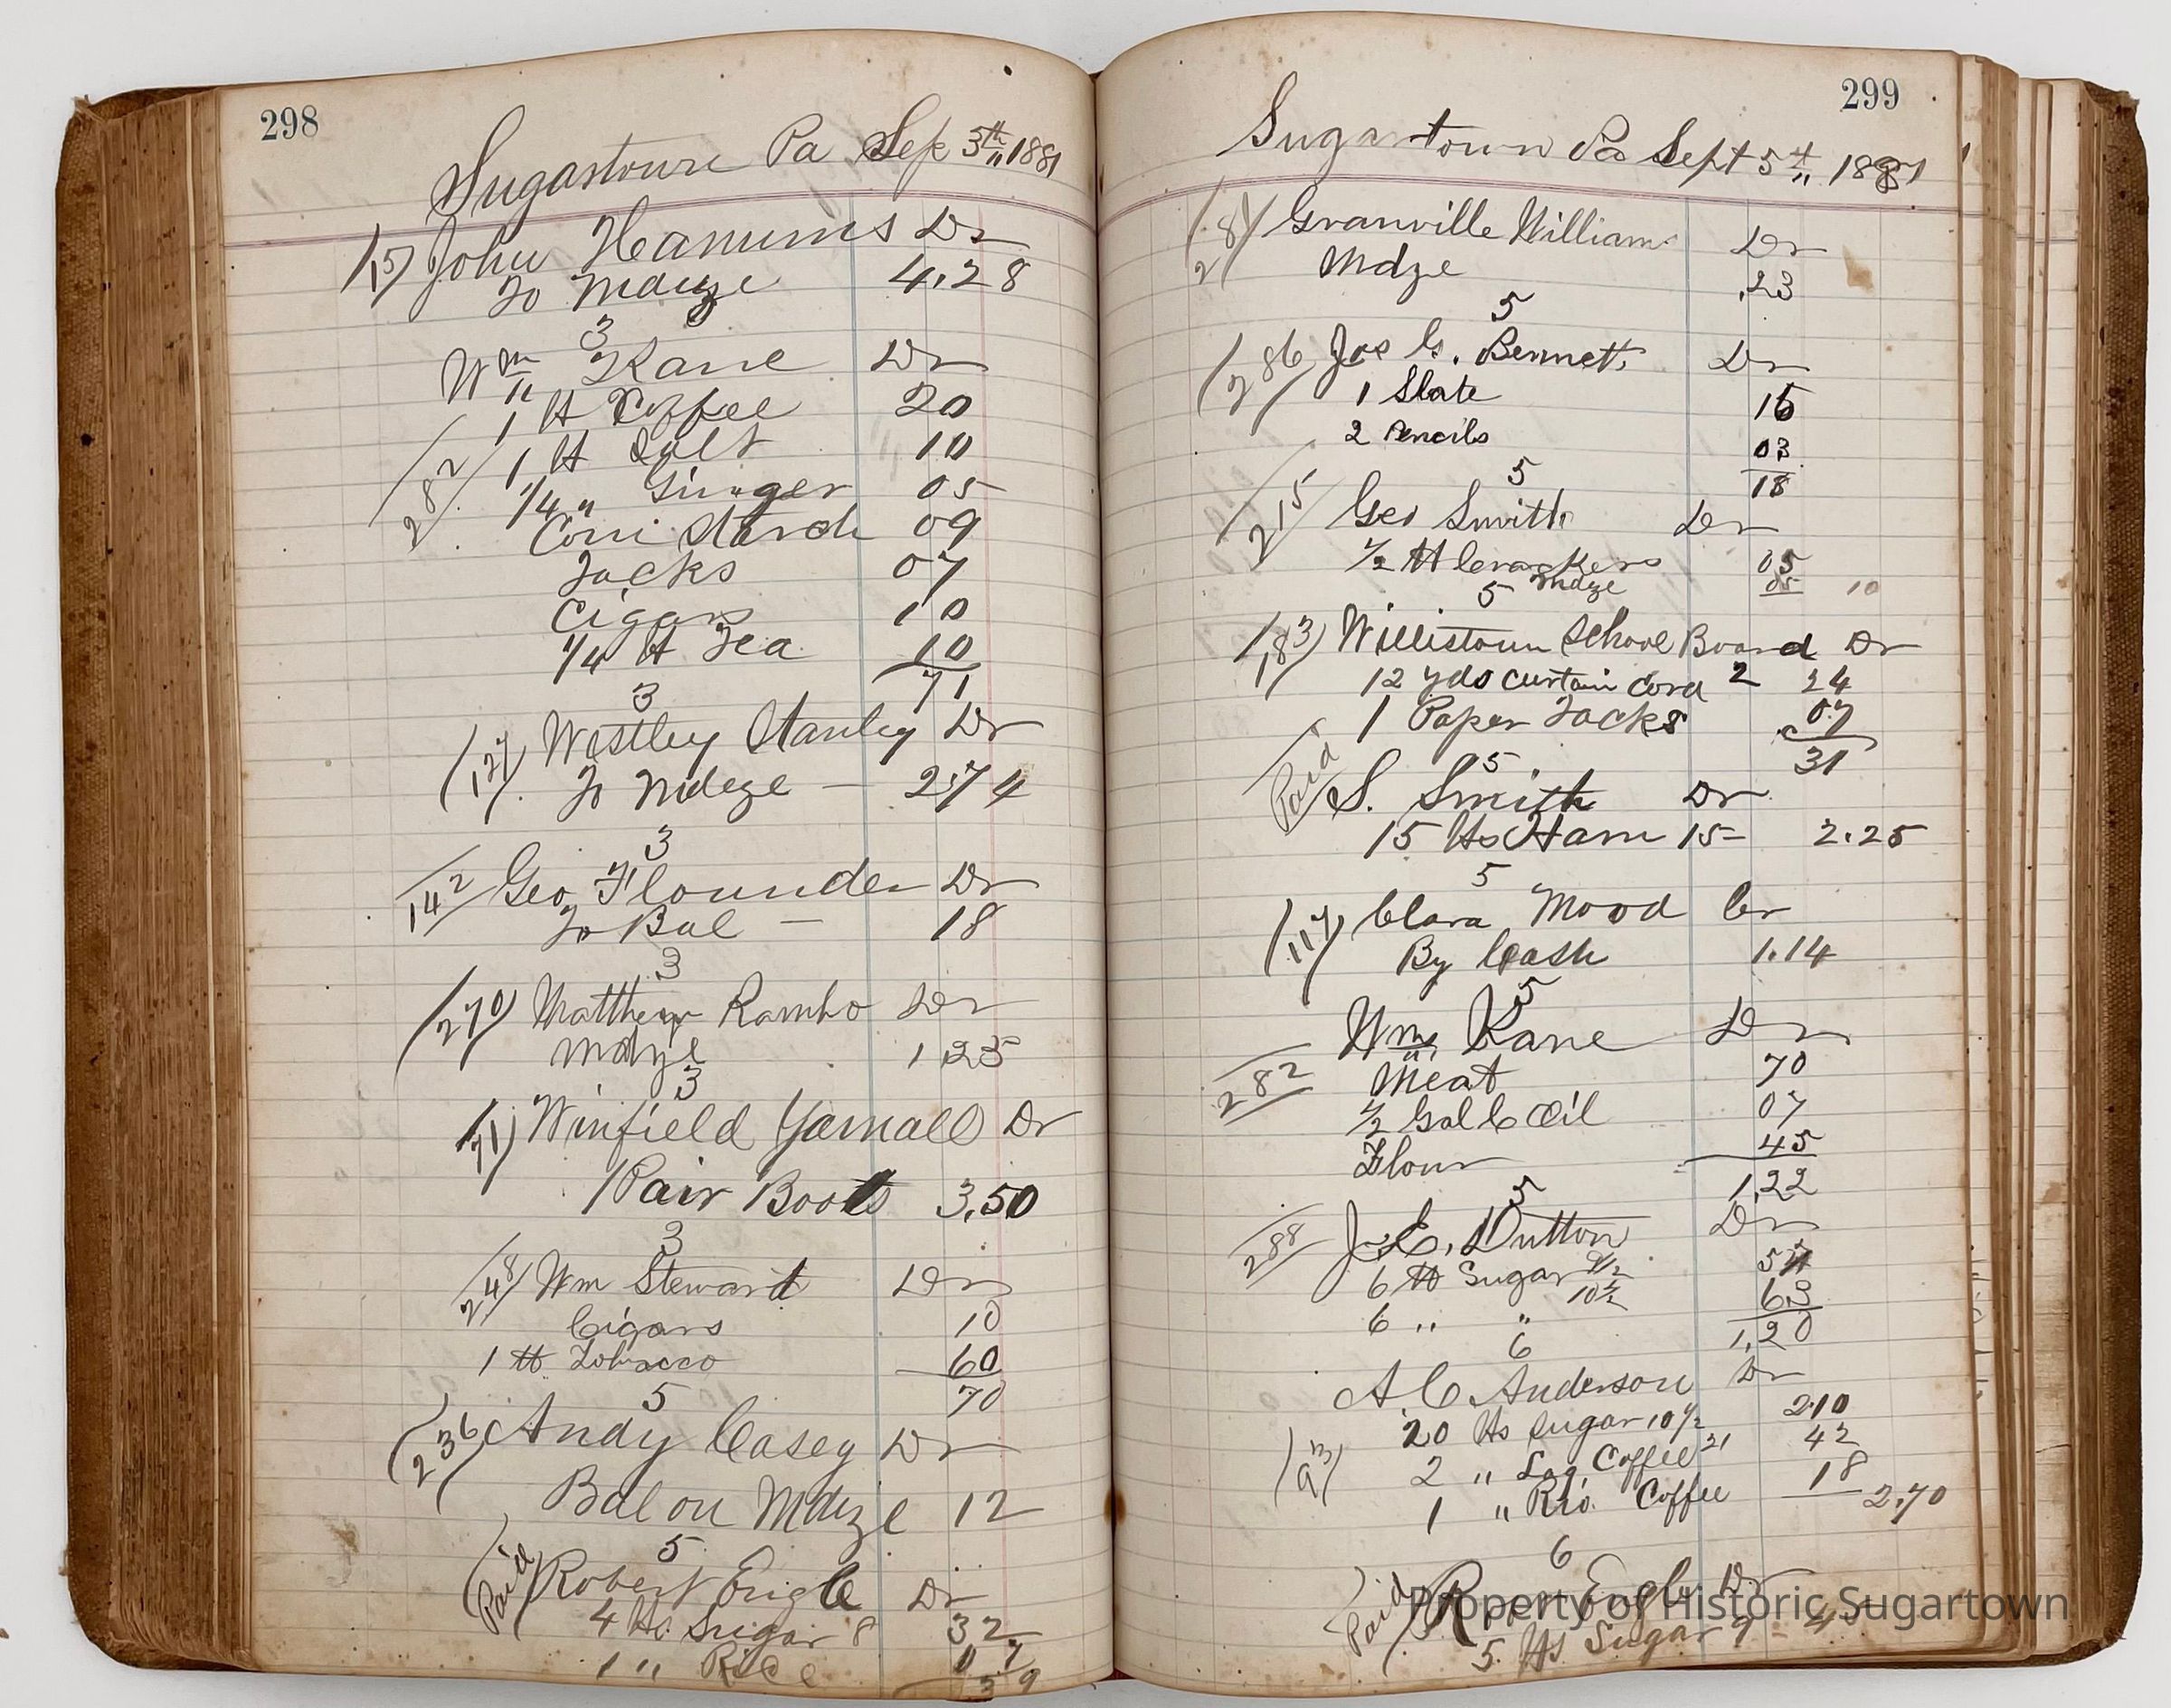 298
Sugartown Pa Sep 3th 1881
15 John Hanums Dr
To Mdze 4.28
3
Wm Kane Dr
1 lb Coffee 20
282 1 lb Salt 10
1/4 " Ginger 05
Corn Starch 09
Tacks 07
Cigars 10
1/4 lb Tea 10
71
3
127 Westley Stanley Dr
To Mdze — 2.74
3
142 Geo Flounder Dr
To Bal — 18
3
270 Matthew Rambo Dr
Mdze 1 25
3
71 Winfield Yarnall Dr
1 Pair Boots 3.50
3
248 Wm Steward Dr
Cigars 10
1 lb Tobacco 60
70
5
236 Andy Casey Dr
Bal on Mdze 12
5
Paid Robert Engle Dr
4 lbs Sugar 8 32
1 " Rice 07
39
299
Sugartown Pa Sept 5th 1881
281 Granville William Dr
Mdze .23
5
286 Jos G. Bennett Dr
1 Slate 15
2 Pencils 03
18
5
215 Geo Smith Dr
1/2 lb Crackers 05
Mdze 05 10
5
183 Willistown School Board Dr
12 yds curtain cord 2 24
1 Paper Tacks 07
31
5
Paid S. Smith Dr
15 lbs Ham 15 2.25
5
117 Clara Mood Cr
By Cash 1.14
5
Wm Kane Dr
282 Meat 70
1/2 Gal C Oil 07
Flour 45
1.22
5
288 J. E. Dutton Dr
6 lb Sugar 9 1/2 57
6 " " 10 1/2 63
1,20
6
A. C Anderson Dr
20 lbs sugar 10 1/2 2.10
93 2 " Lag. Coffee 21 42
1 " Rio Coffee 18 2.70
6
Paid Engle Dr
5 lbs Sugar 9
Property of Historic Sugartown